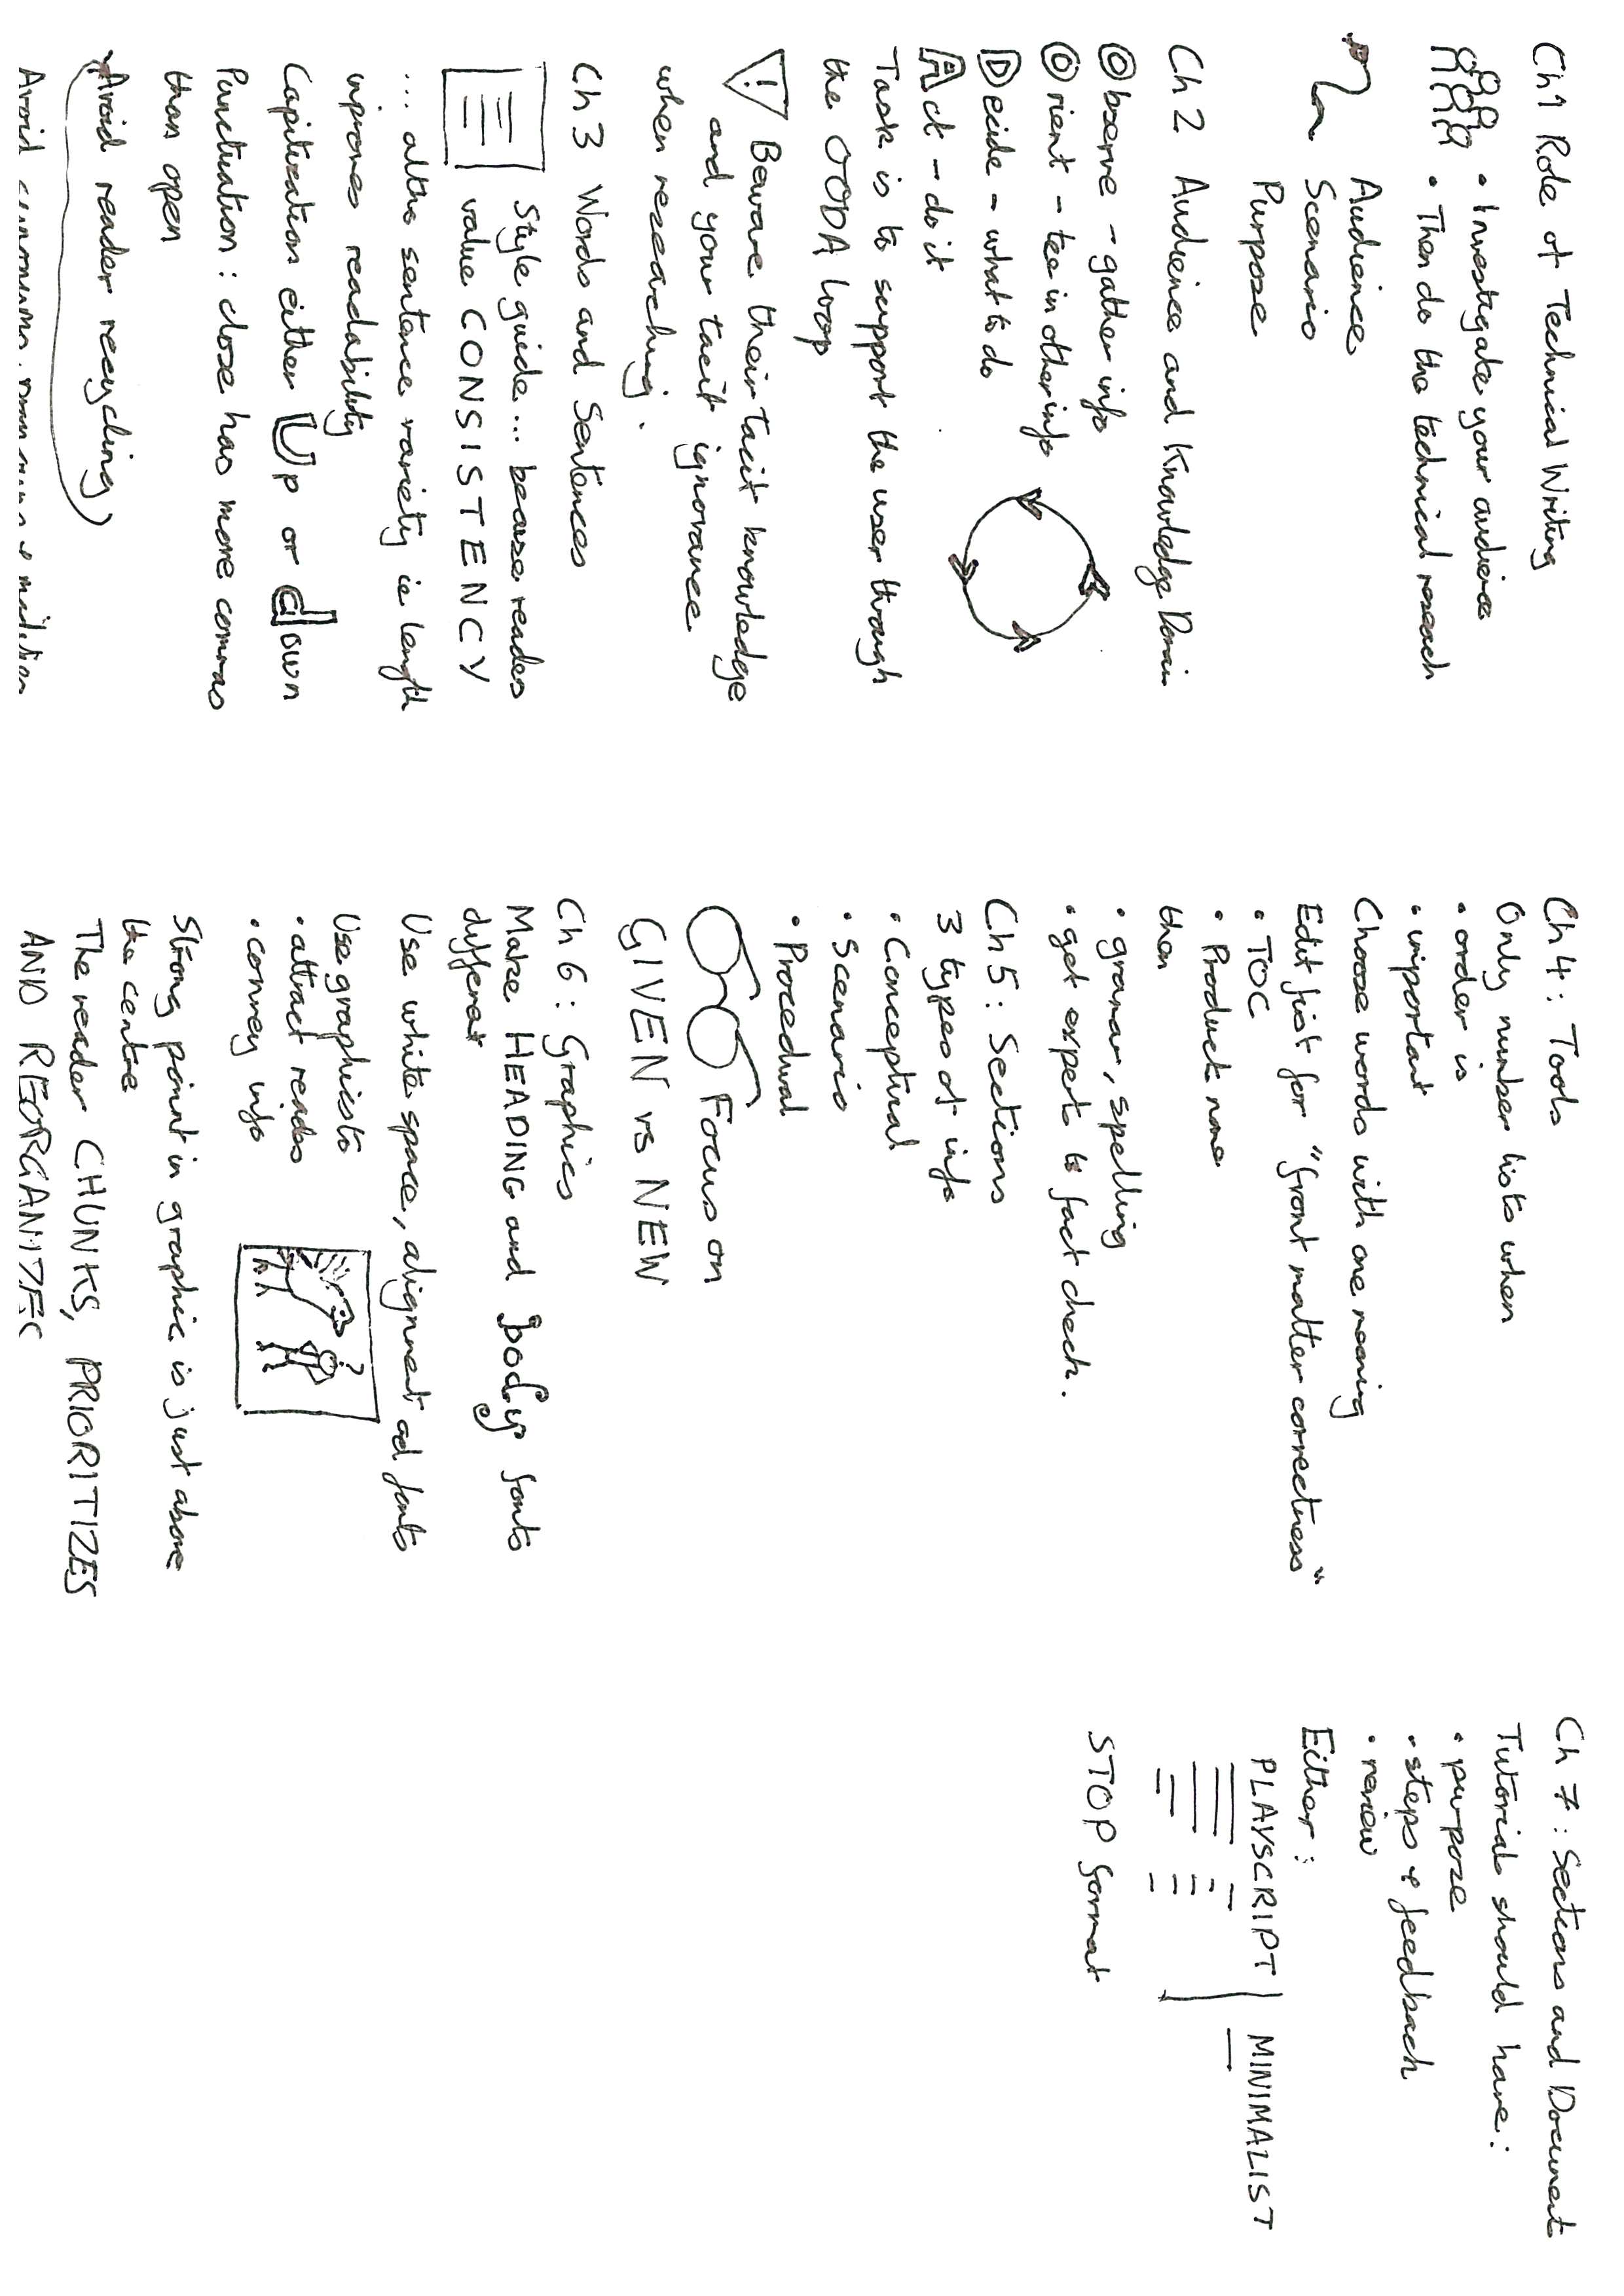 Ch1 Role of Technical Writing
• Investigate your audience
• Then do the technical reseach
Audience
Scenario
Purpose
Ch 2 Audience and Knowledge Domai
Observe - gather info
Orient - tee in other info
Decide - what to do
Act - do it
Task is to support the user through
the OODA loop
Beware their tacit knowledge
and your tacit ignorance
when researching.
Ch 3 Words and Sentences
Style guide ... because reades
value CONSISTENCY
... altho sentence variety ie length
improves readability
Capitilization either Up or down
Punctuation: close has more commas
than open
Avoid reader recycling
Avoid
Ch 4: Tools
Only number lists when
• order is
• important
Choose words with one meaning
Edit fist for "front matter correctness"
• TOC
• Product name
then
• grammar, spelling
• get experts to fact check.
Ch 5: Sections
3 types of info
• Conceptual
• Scenario
• Procedural
Focus on
GIVEN vs NEW
Ch 6: Graphics
Make HEADING and body fonts
different
Use white space, alignment ad fonts
Use graphics to
• attract reades
• convey info
?
Strong point in graphic is just above
the centre
The reader CHUNKS, PRIORITIZES
AND REORGANIZES
Ch 7: Sections and Document
Tutorials should have:
• purpose
• steps & feedback
• review
Either:
PLAYSCRIPT | MINIMALIST
STOP format